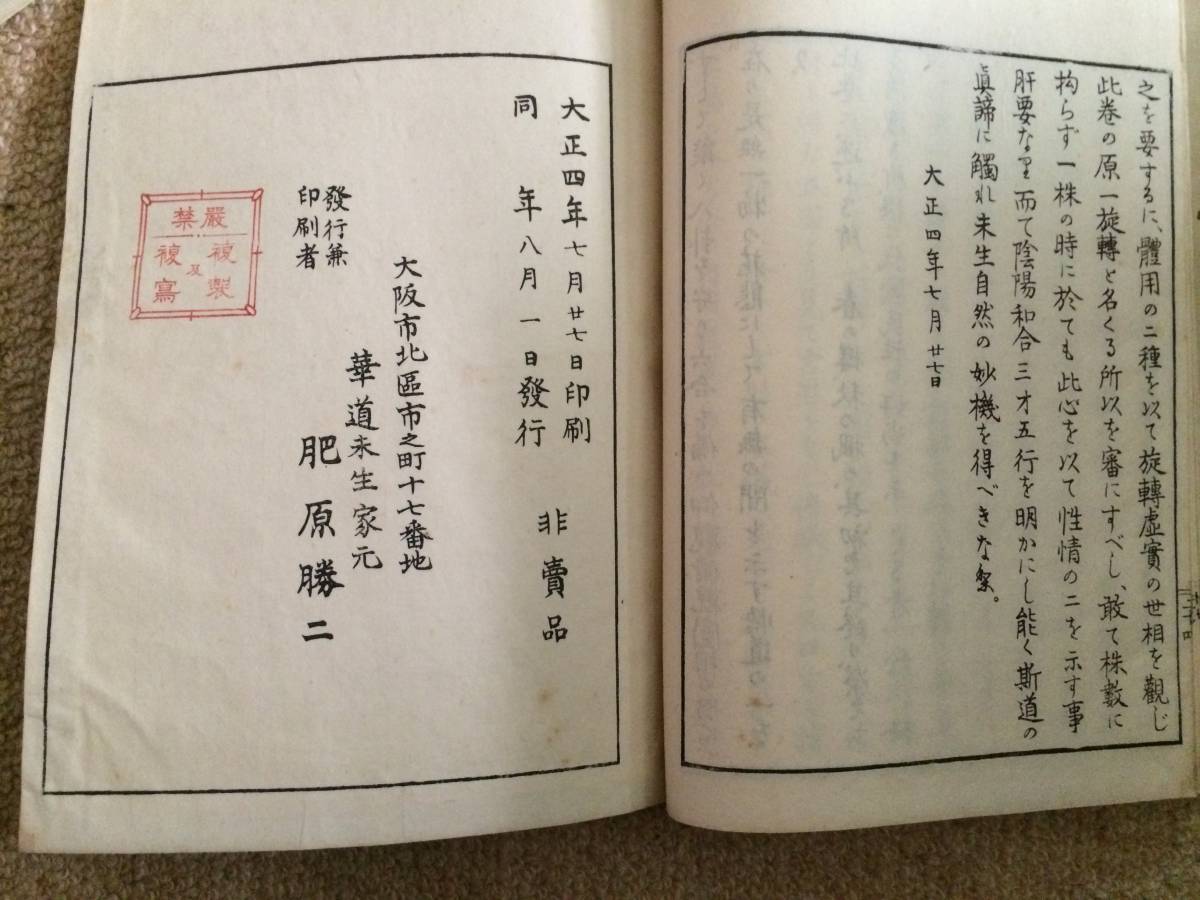 之を要するに、體用の二種を以て旋轉虛實の世相を觀じ
此卷の原一旋轉と名くる所以を審にすべし、敢て株數に
拘らず一株の時に於ても此心を以て性情の二を示す事
肝要なり而て陰陽和合三才五行を明かにし能く斯道の
眞諦に觸れ未生自然の妙機を得べきな
大正四年七月廿七日
大正四年七月廿七日印刷
同年八月一日發行
非賣品
大阪市北區市之町十七番地
華道未生家元
發行兼
印刷者
肥原勝二
嚴禁
複製
及
複寫